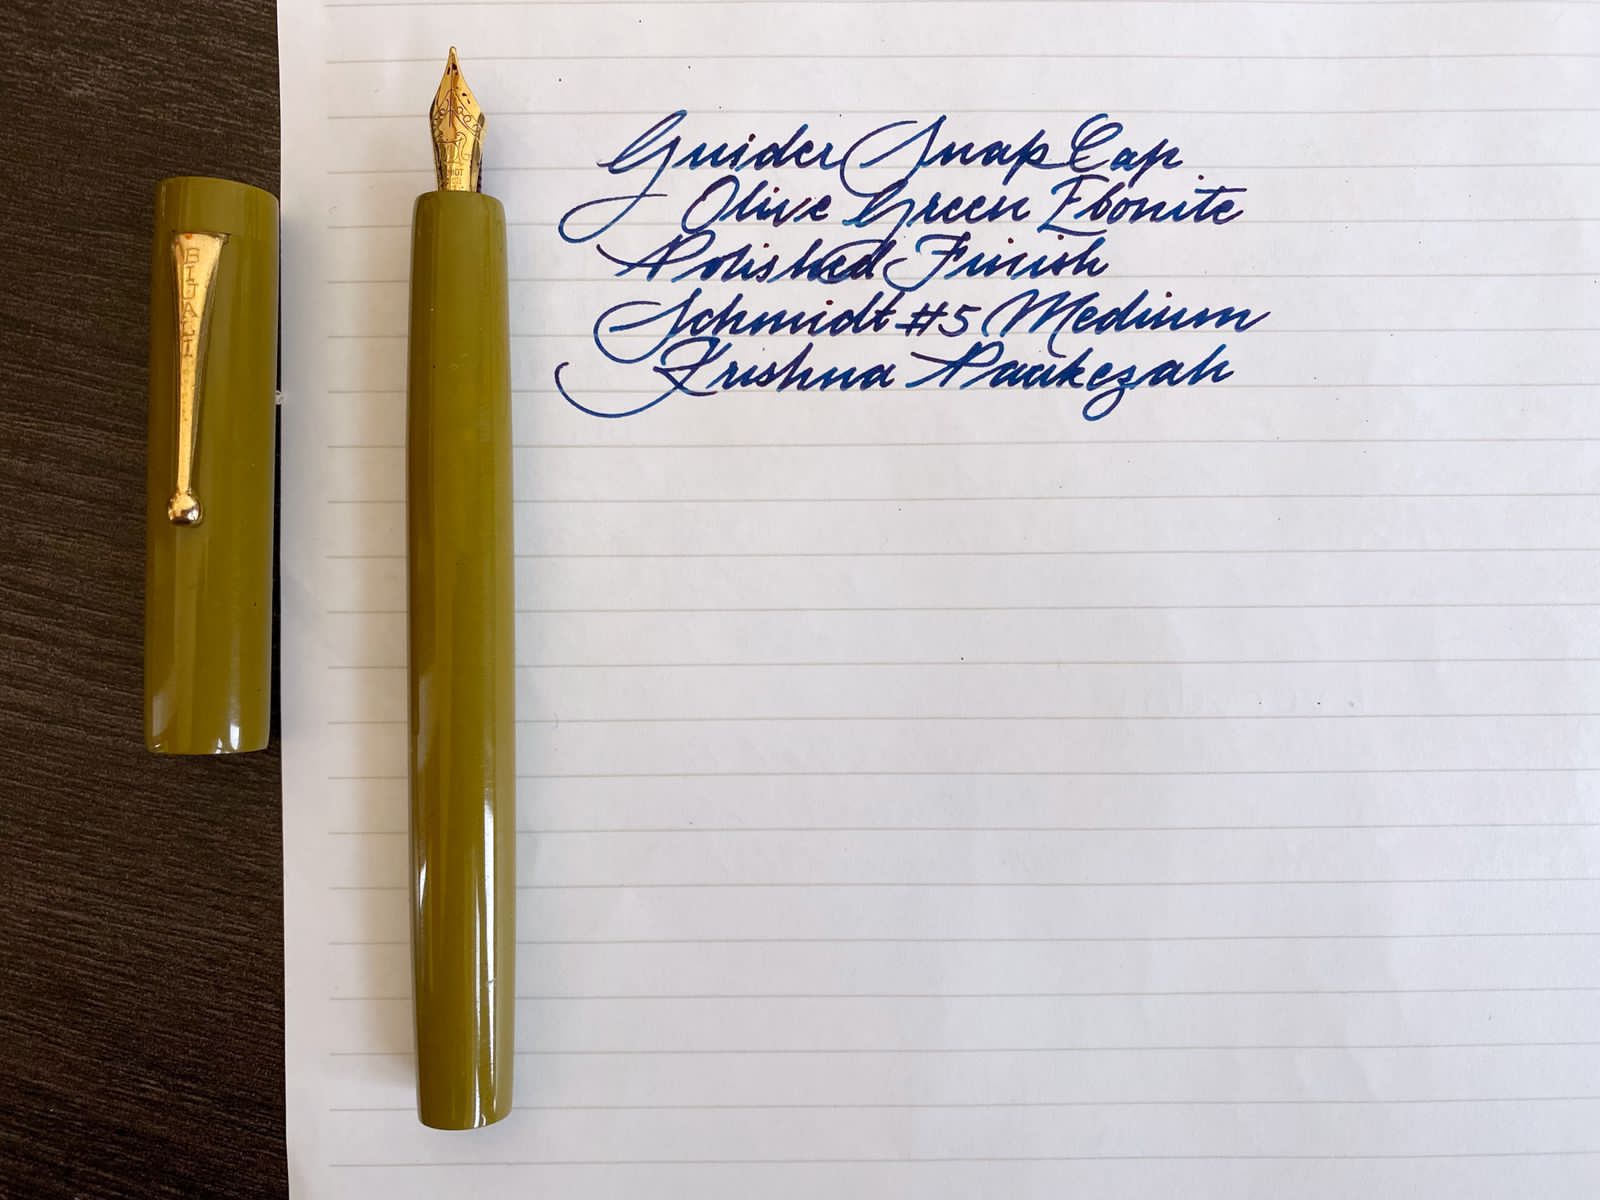 BIJALI
Guider Snap Cap
Olive Green Ebonite
Polished Finish
Schmidt #5 Medium
Krishna Paakezah